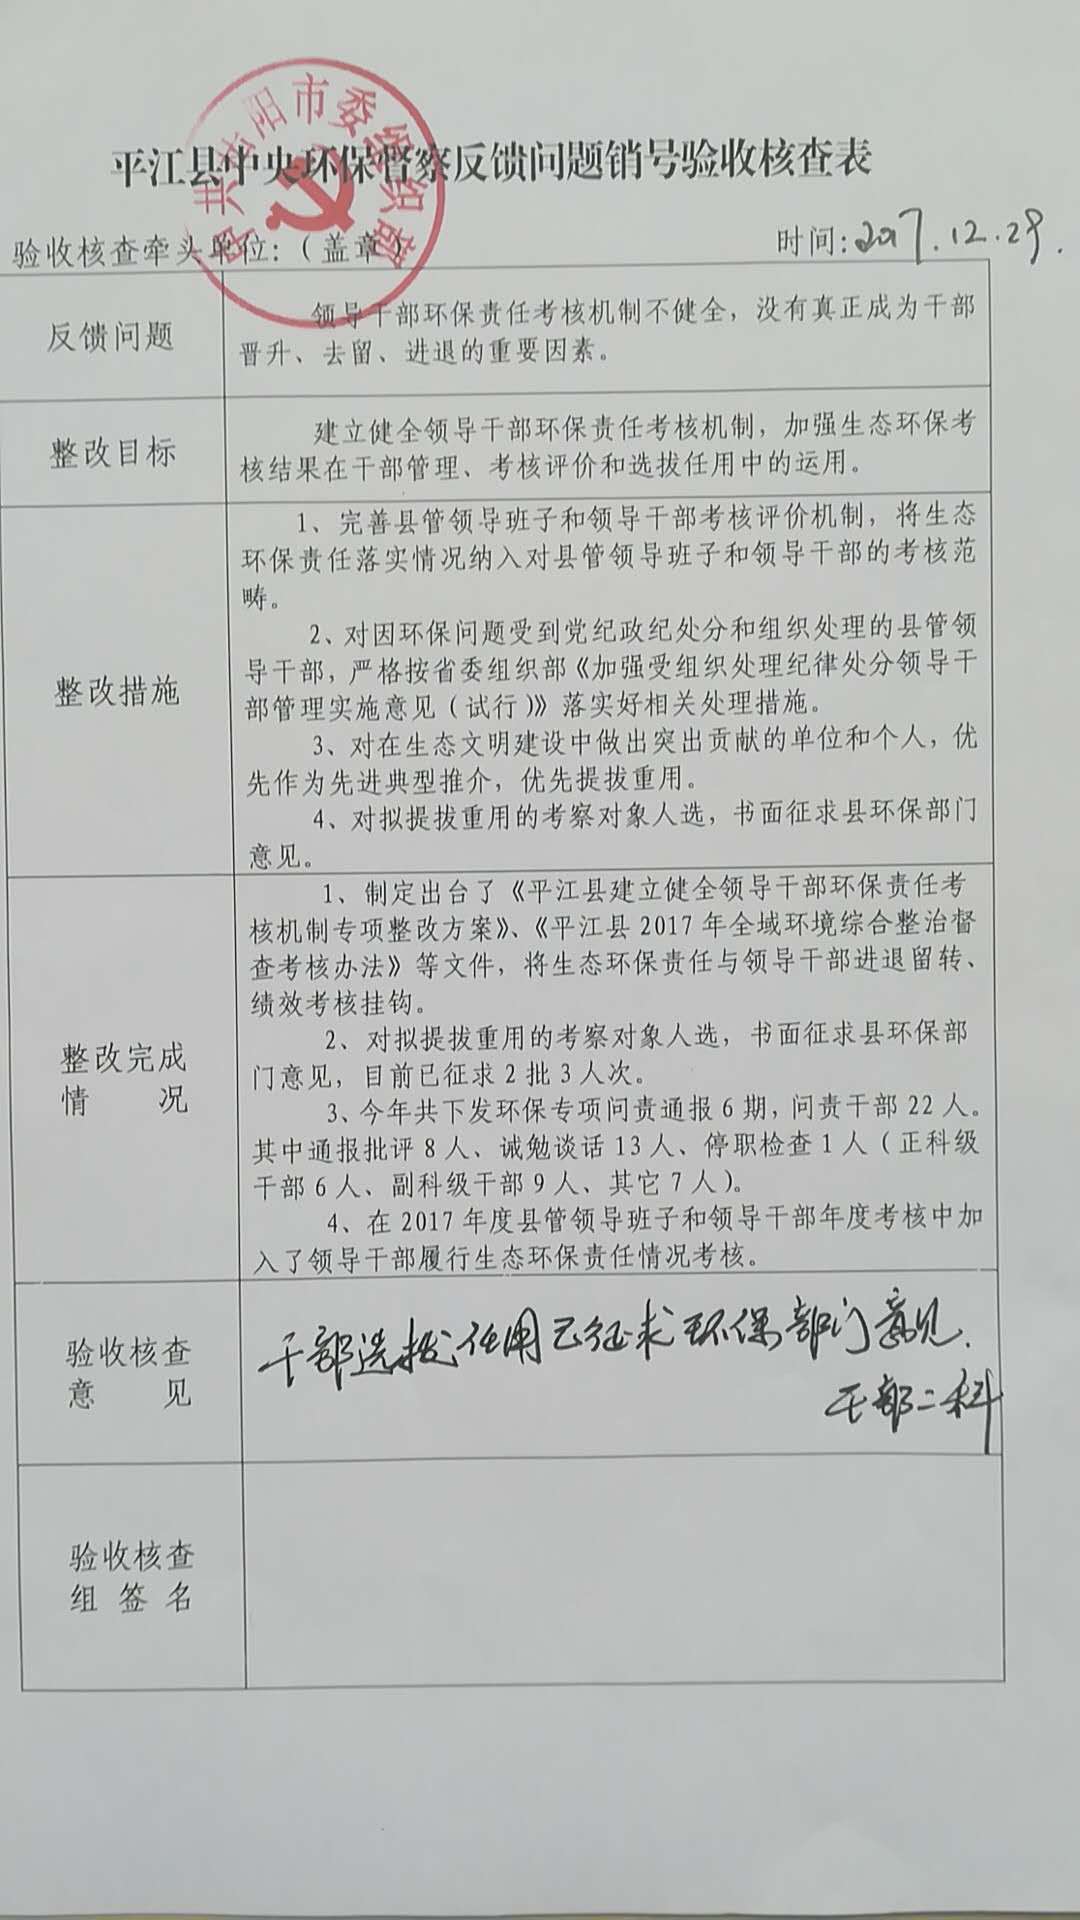 平江县中央环保督察反馈问题销号验收核查表
验收核查牵头单位：（盖章） 时间：2017.12.29.
反馈问题
领导干部环保责任考核机制不健全，没有真正成为干部
晋升、去留、进退的重要因素。
整改目标
建立健全领导干部环保责任考核机制，加强生态环保考
核结果在干部管理、考核评价和选拔任用中的运用。
整改措施
1、完善县管领导班子和领导干部考核评价机制，将生态
环保责任落实情况纳入对县管领导班子和领导干部的考核范
畴。
2、对因环保问题受到党纪政纪处分和组织处理的县管领
导干部，严格按省委组织部《加强受组织处理纪律处分领导干
部管理实施意见（试行）》落实好相关处理措施。
3、对在生态文明建设中做出突出贡献的单位和个人，优
先作为先进典型推介，优先提拔重用。
4、对拟提拔重用的考察对象人选，书面征求县环保部门
意见。
整改完成
情 况
1、制定出台了《平江县建立健全领导干部环保责任考
核机制专项整改方案》、《平江县 2017 年全域环境综合整治督
查考核办法》等文件，将生态环保责任与领导干部进退留转、
绩效考核挂钩。
2、对拟提拔重用的考察对象人选，书面征求县环保部
门意见，目前已征求 2 批 3 人次。
3、今年共下发环保专项问责通报 6 期，问责干部 22 人。
其中通报批评 8 人、诫勉谈话 13 人、停职检查 1 人（正科级
干部 6 人、副科级干部 9 人、其它 7 人）。
4、在 2017 年度县管领导班子和领导干部年度考核中加
入了领导干部履行生态环保责任情况考核。
验收核查
意 见
干部选拔任用已征求环保部门意见.
干部二科
验收核查
组 签 名
中共岳阳市委组织部